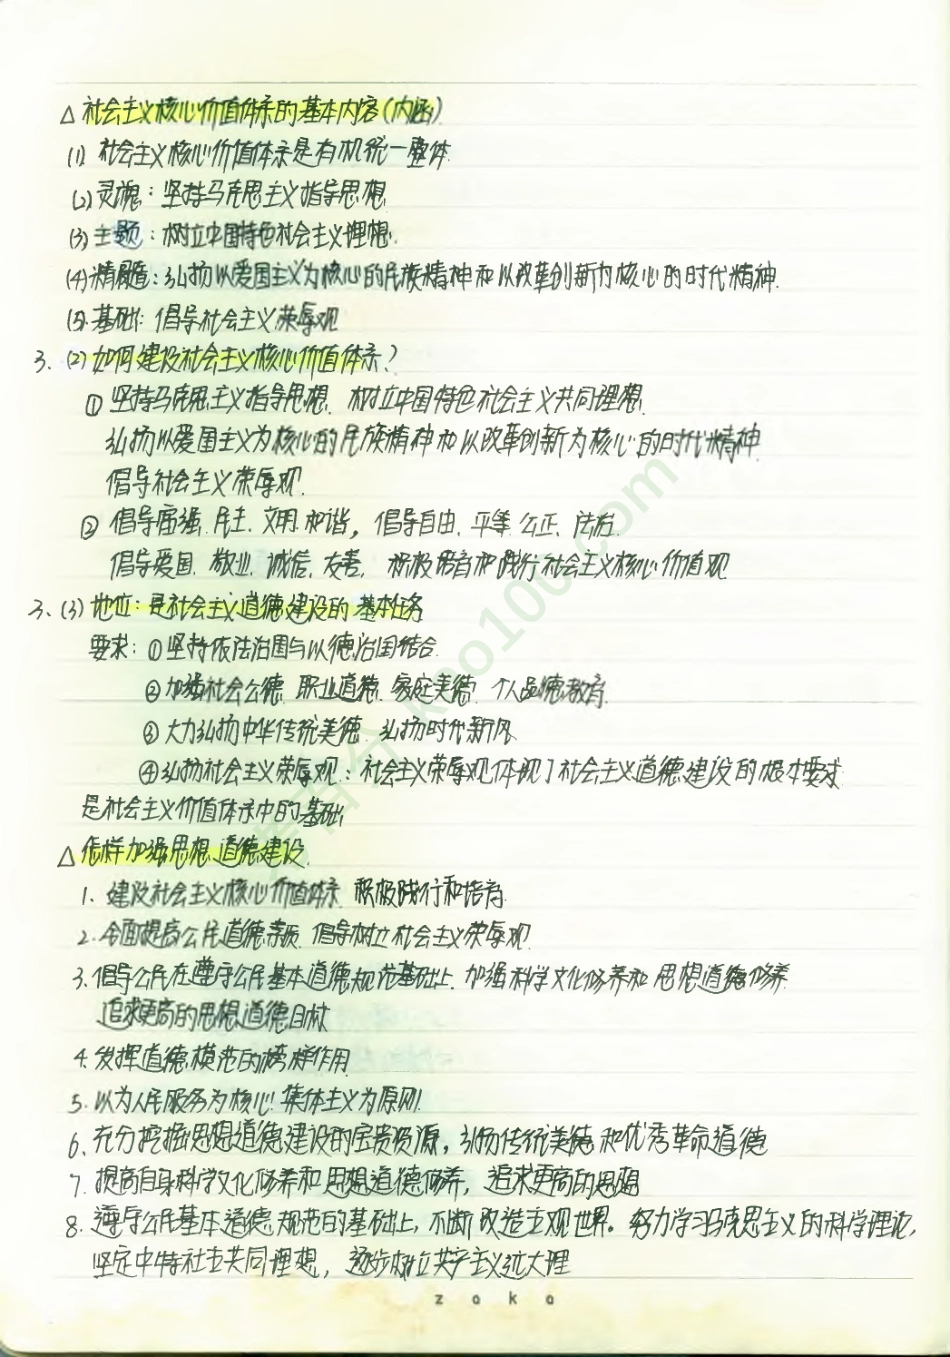 △ 社会主义核心价值体系的基本内容(内涵)
(1) 社会主义核心价值体系是有机统一整体.
(2) 灵魂：坚持马克思主义指导思想.
(3) 主题：树立中国特色社会主义理想.
(4) 精髓：弘扬以爱国主义为核心的民族精神和以改革创新为核心的时代精神.
(5). 基础：倡导社会主义荣辱观
3、(2) 如何建设社会主义核心价值体系？
① 坚持马克思主义指导思想、树立中国特色社会主义共同理想.
弘扬以爱国主义为核心的民族精神和以改革创新为核心的时代精神.
倡导社会主义荣辱观.
② 倡导富强、民主、文明、和谐，倡导自由、平等、公正、法治.
倡导爱国、敬业、诚信、友善，积极培育和践行社会主义核心价值观
3、(3) 地位：是社会主义道德建设的基本任务
要求：①坚持依法治国与以德治国结合.
②加强社会公德、职业道德、家庭美德、个人品德教育.
③大力弘扬中华传统美德、弘扬时代新风.
④弘扬社会主义荣辱观：社会主义荣辱观体现了社会主义道德建设的根本要求
是社会主义价值体系中的基础
△ 怎样加强思想道德建设.
1. 建设社会主义核心价值体系、积极践行和培育
2. 全面提高公民道德素质、倡导树立社会主义荣辱观.
3. 倡导公民在遵守公民基本道德规范基础上、加强科学文化修养和思想道德修养
追求更高的思想道德目标
4. 发挥道德模范的榜样作用
5. 以为人民服务为核心、集体主义为原则.
6. 充分挖掘思想道德建设的宝贵资源，弘扬传统美德和优秀革命道德
7. 提高自身科学文化修养和思想道德修养，追求更高的思想
8. 遵守公民基本道德规范的基础上，不断改造主观世界。努力学习马克思主义的科学理论，
坚定中特社主共同理想，逐步树立共产主义远大理
zoko